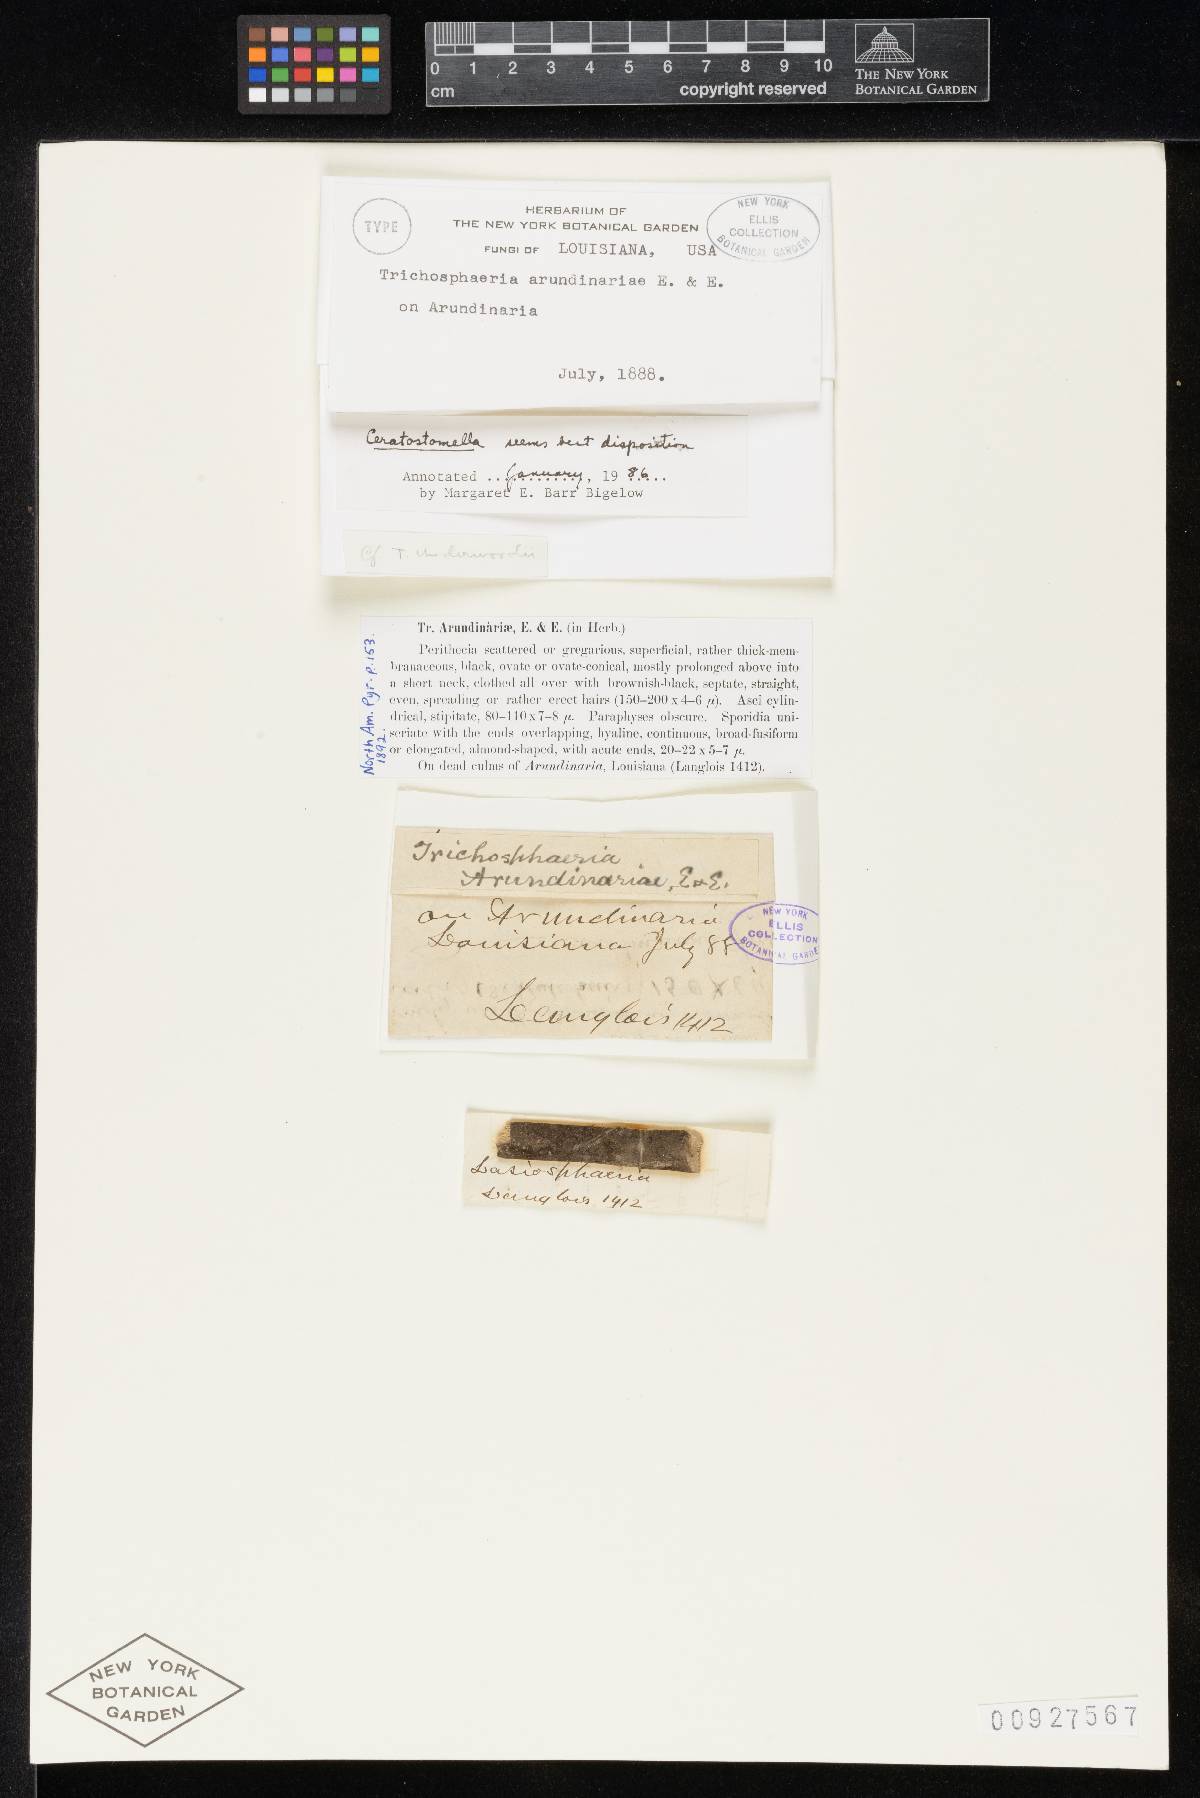 0 1 2 3 4 5 6 7 8 9 10
cm
copyright reserved
THE NEW YORK
BOTANICAL GARDEN
TYPE
HERBARIUM OF
THE NEW YORK BOTANICAL GARDEN
FUNGI OF LOUISIANA, USA
NEW YORK
ELLIS
COLLECTION
BOTANICAL GARDEN
Trichosphaeria arundinariae E. & E.
on Arundinaria
July, 1888.
Ceratostomella seems best disposition
Annotated ..January, 1986..
by Margaret E. Barr Bigelow
Cf T. underwoodii
North Am. Pyr. p. 153.
1892.
Tr. Arundinàriæ, E. & E. (in Herb.)
Perithecia scattered or gregarious, superficial, rather thick-mem-
branaceous, black, ovate or ovate-conical, mostly prolonged above into
a short neck, clothed all over with brownish-black, septate, straight,
even, spreading or rather erect hairs (150–200 x 4–6 µ). Asci cylin-
drical, stipitate, 80–110 x 7–8 µ. Paraphyses obscure. Sporidia uni-
seriate with the ends overlapping, hyaline, continuous, broad-fusiform
or elongated, almond-shaped, with acute ends, 20–22 x 5–7 µ.
On dead culms of Arundinaria, Louisiana (Langlois 1412).
Trichosphaeria
Arundinariae, E & E.
on Arundinaria
Louisiana July 88
Langlois 1412
NEW YORK
ELLIS
COLLECTION
BOTANICAL GARDE
Lasiosphaeria
Langlois 1412
NEW YORK
BOTANICAL
GARDEN
00927567